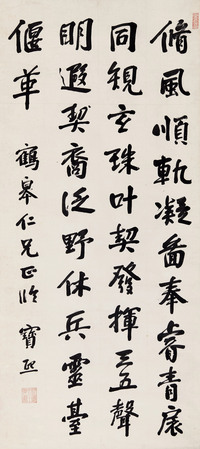 脩風順軌凝圖奉睿青扆
同規玄珠叶契發揮三五聲
明遐契裔泛野休兵靈臺
偃革 鶴皋仁兄正臨 寶熙